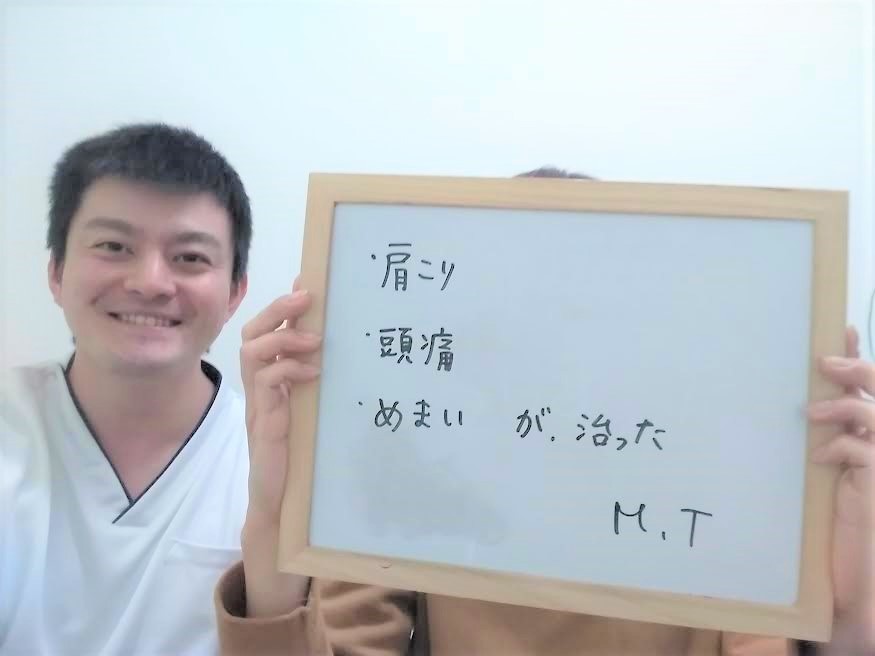 ・肩こり
・頭痛
・めまい が、治った
M.T